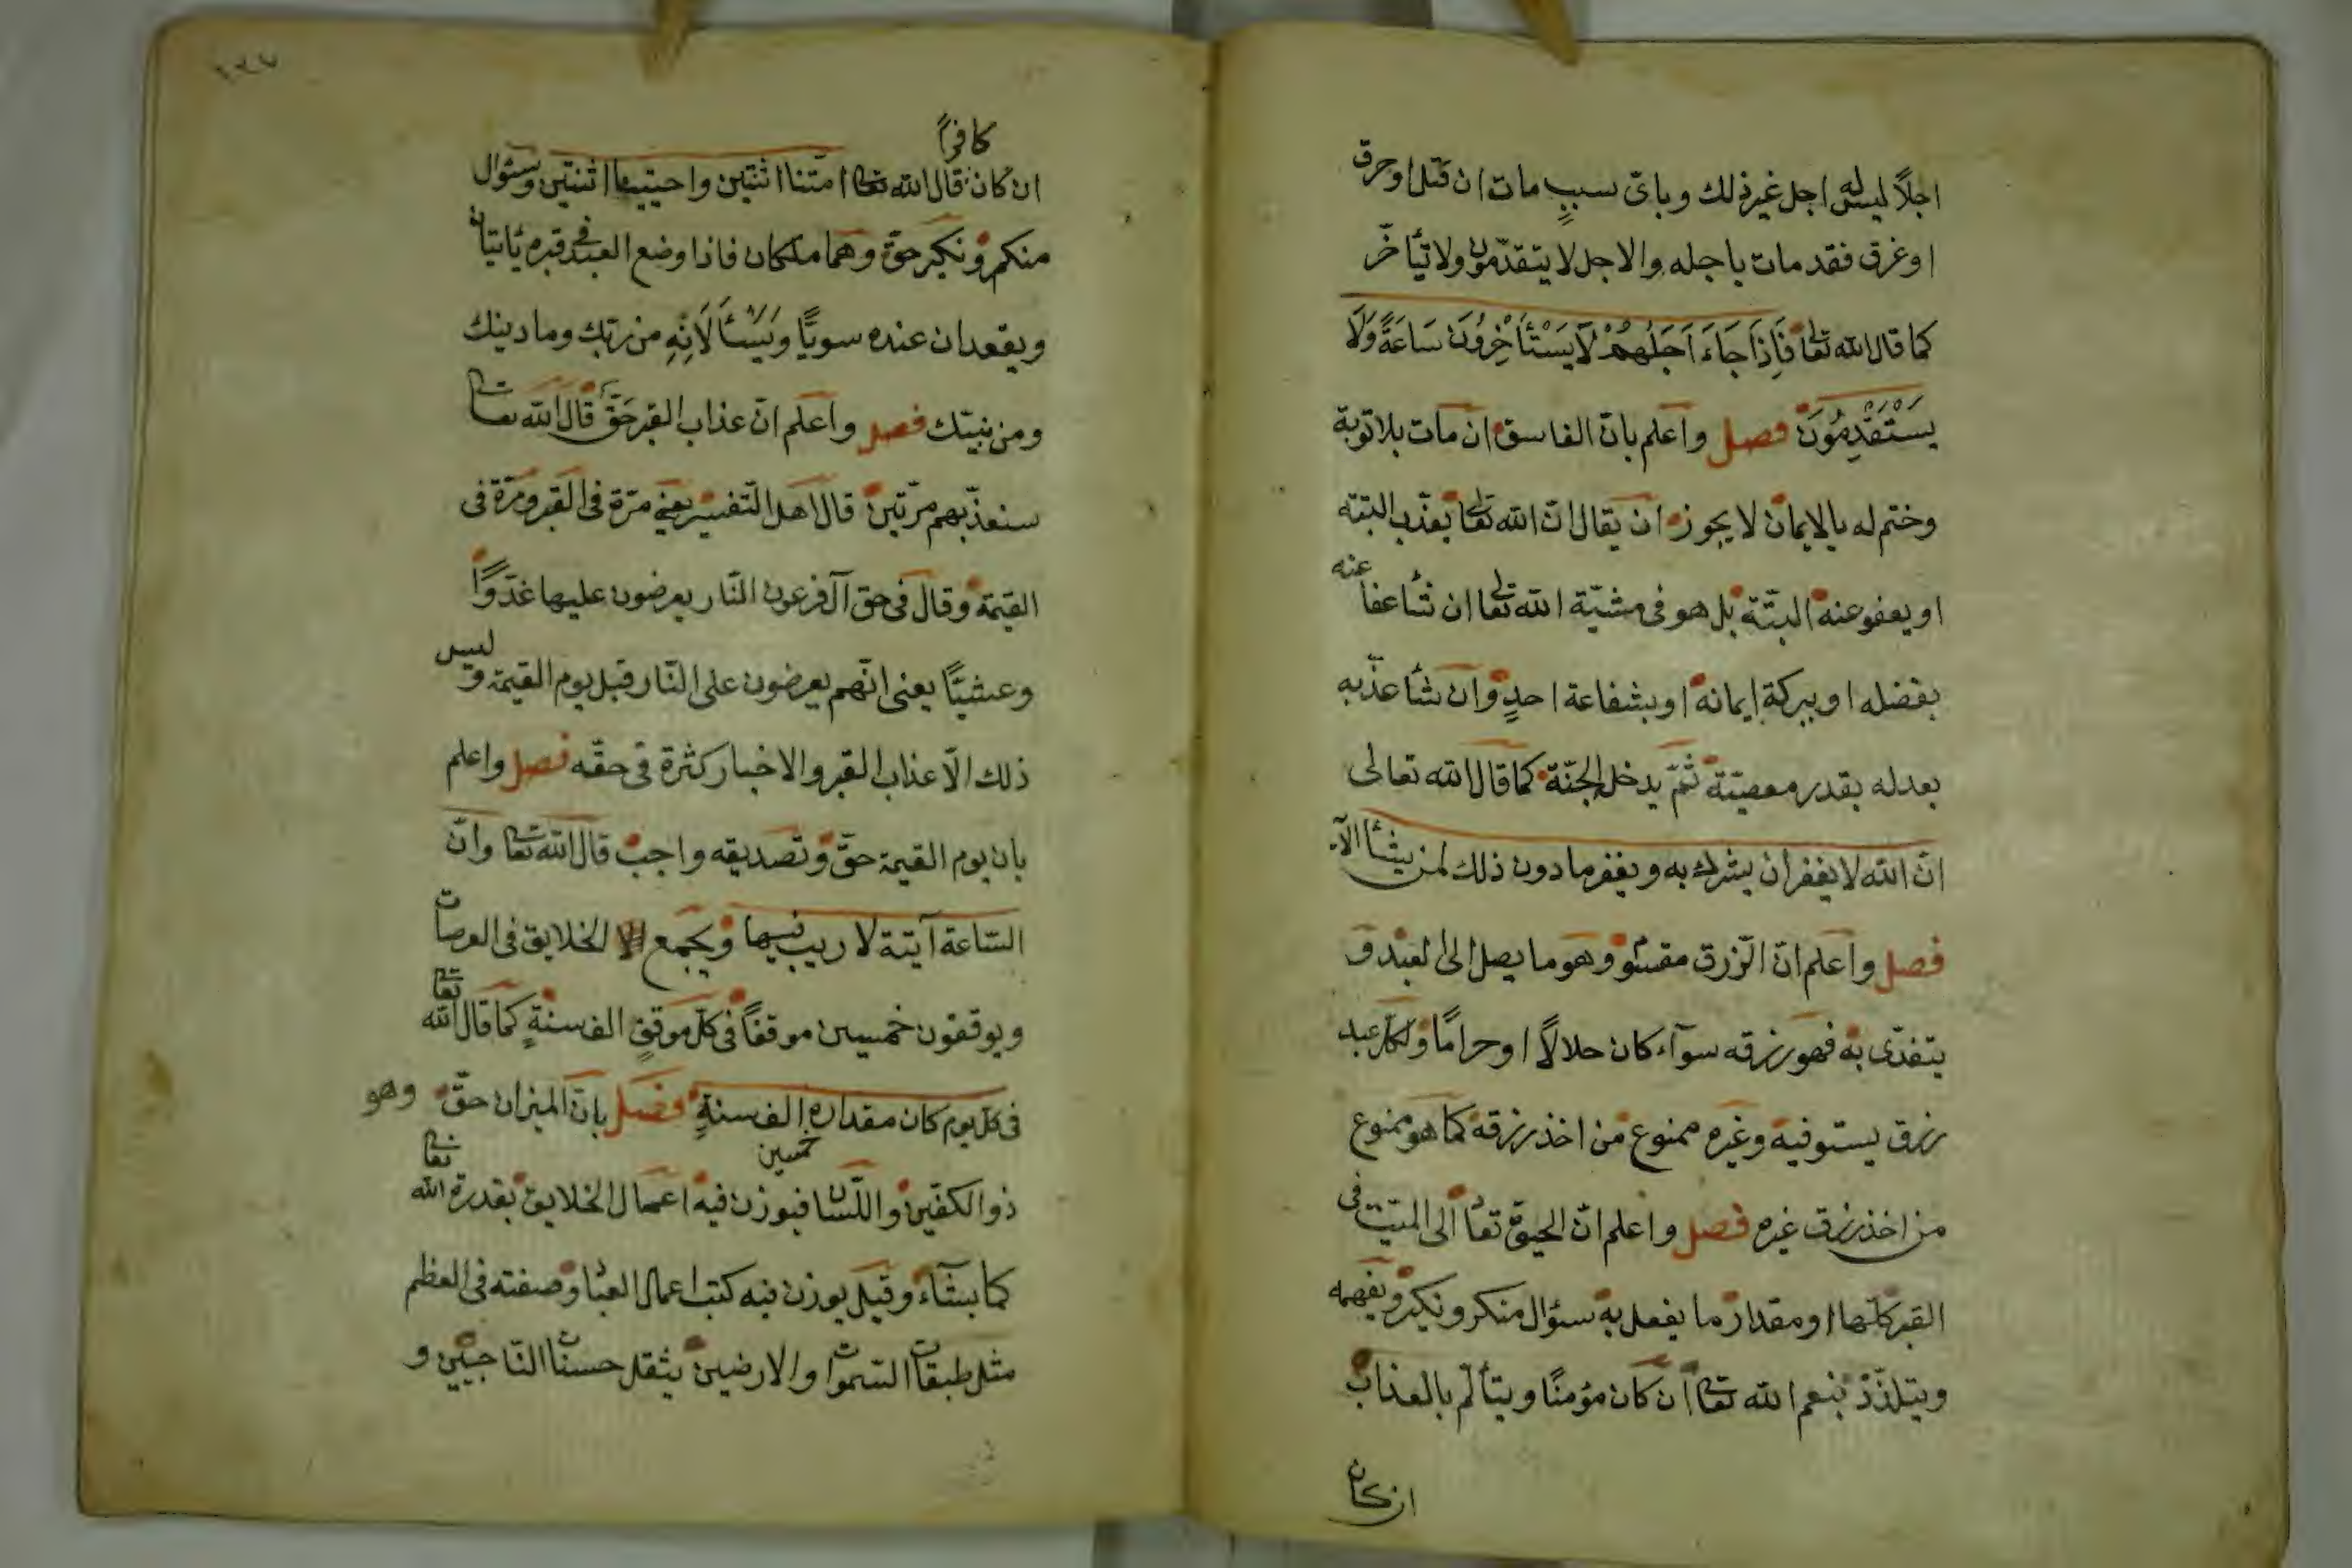 اجلاً ليس له اجل غير ذلك وباىّ سببٍ مات ان قتل او حرق
او غرق فقد مات باجله والاجل لا يتقدّمون ولا تيأخّر
كما قال الله تعالى فَاِذَا جَاءَ اَجَلُهُمْ لَا يَسْتَأْخِرُونَ سَاعَةً وَلَا
يَسْتَقْدِمُونَ فصل واعلم بانّ الفاسق ان مات بلا توبة
وختم له بالايمان لا يجوز ان يقال انّ الله تعالى يعذّب البتّه
او يعفو عنه البتّة بل هو فى مشيّة الله تعالى ان شأ عفا عنه
بفضله او ببركة ايمانه او بشفاعة احدٍ وان شأ عذّبه
بعدله بقدر معصيّة ثمّ يدخل الجنّة كما قال الله تعالى
انّ الله لا يغفر ان يشرك به ويغفر ما دون ذلك لمن يشأ الآ
فصل واعلم انّ الرّزق مقسوم وهو ما يصل الى لعبد و
يتغذّى به فهو رزقه سوآء كان حلالاً او حرامًا ولكلّ عبد
رزق يستوفيه وغيره ممنوع من اخذ رزقه كما هو ممنوع
من اخذ رزق غيره فصل واعلم انّ الحيوة تعاٴ الى الميّت فى
القبر كلّها او مقدار ما يفعل به سئوال منكر ونكير ويفهمه
ويتلذّذ بنعم الله تعا ان كان مؤمنًا ويتألّم بالعذاب
ان كان
١٣٧
ان كان كافرًا قال الله تعا امتّنا اثنتين واحييتنا اثنتين وسئوال
منكر ونكير حقّ وهما ملكان فاذا وضع العبد فى قبره يأتيان
ويقعدان عنده سويًّا وَيَسْأَلَانِهِ من ربّك وما دينك
ومن نبيّك فصل واعلم انّ عذاب القبر حَقّ قال الله تعا
سنعذّبهم مرّتين قال اهل التّفسير يعنى مرّة فى القبر ومرّة فى
القيمة وقال فى حق آل فرعون النّار يعرضون عليها غدوًّا
وعشيًّا يعنى انّهم يعرضون على النّار قبل يوم القيمة وليس
ذلك الّا عذاب القبر والاخبار كثرة فى حقّه فصل واعلم
بان يوم القيمة حقّ وتصديقه واجب قال الله تعا وانّ
السّاعة آتية لا ريب فيها ويجمع الخلايق فى العرصات
ويوقفون خمسين موقفاً فى كلّ موقفٍ الف سنةٍ كما قال الله تعا
فى كلّ يوم كان مقداره خمسين الف سنةٍ فصل بانّ الميزان حقّ وهو
ذو الكفّين واللّسان فيوزن فيه اعمال الخلايق بقدرة الله تعا
كما يشآء وقيل يوزن فيه كتب اعمال العباد وصفته فى العظم
مثل طبقات السّموات والارضين يثقل حسنات النّاجين و